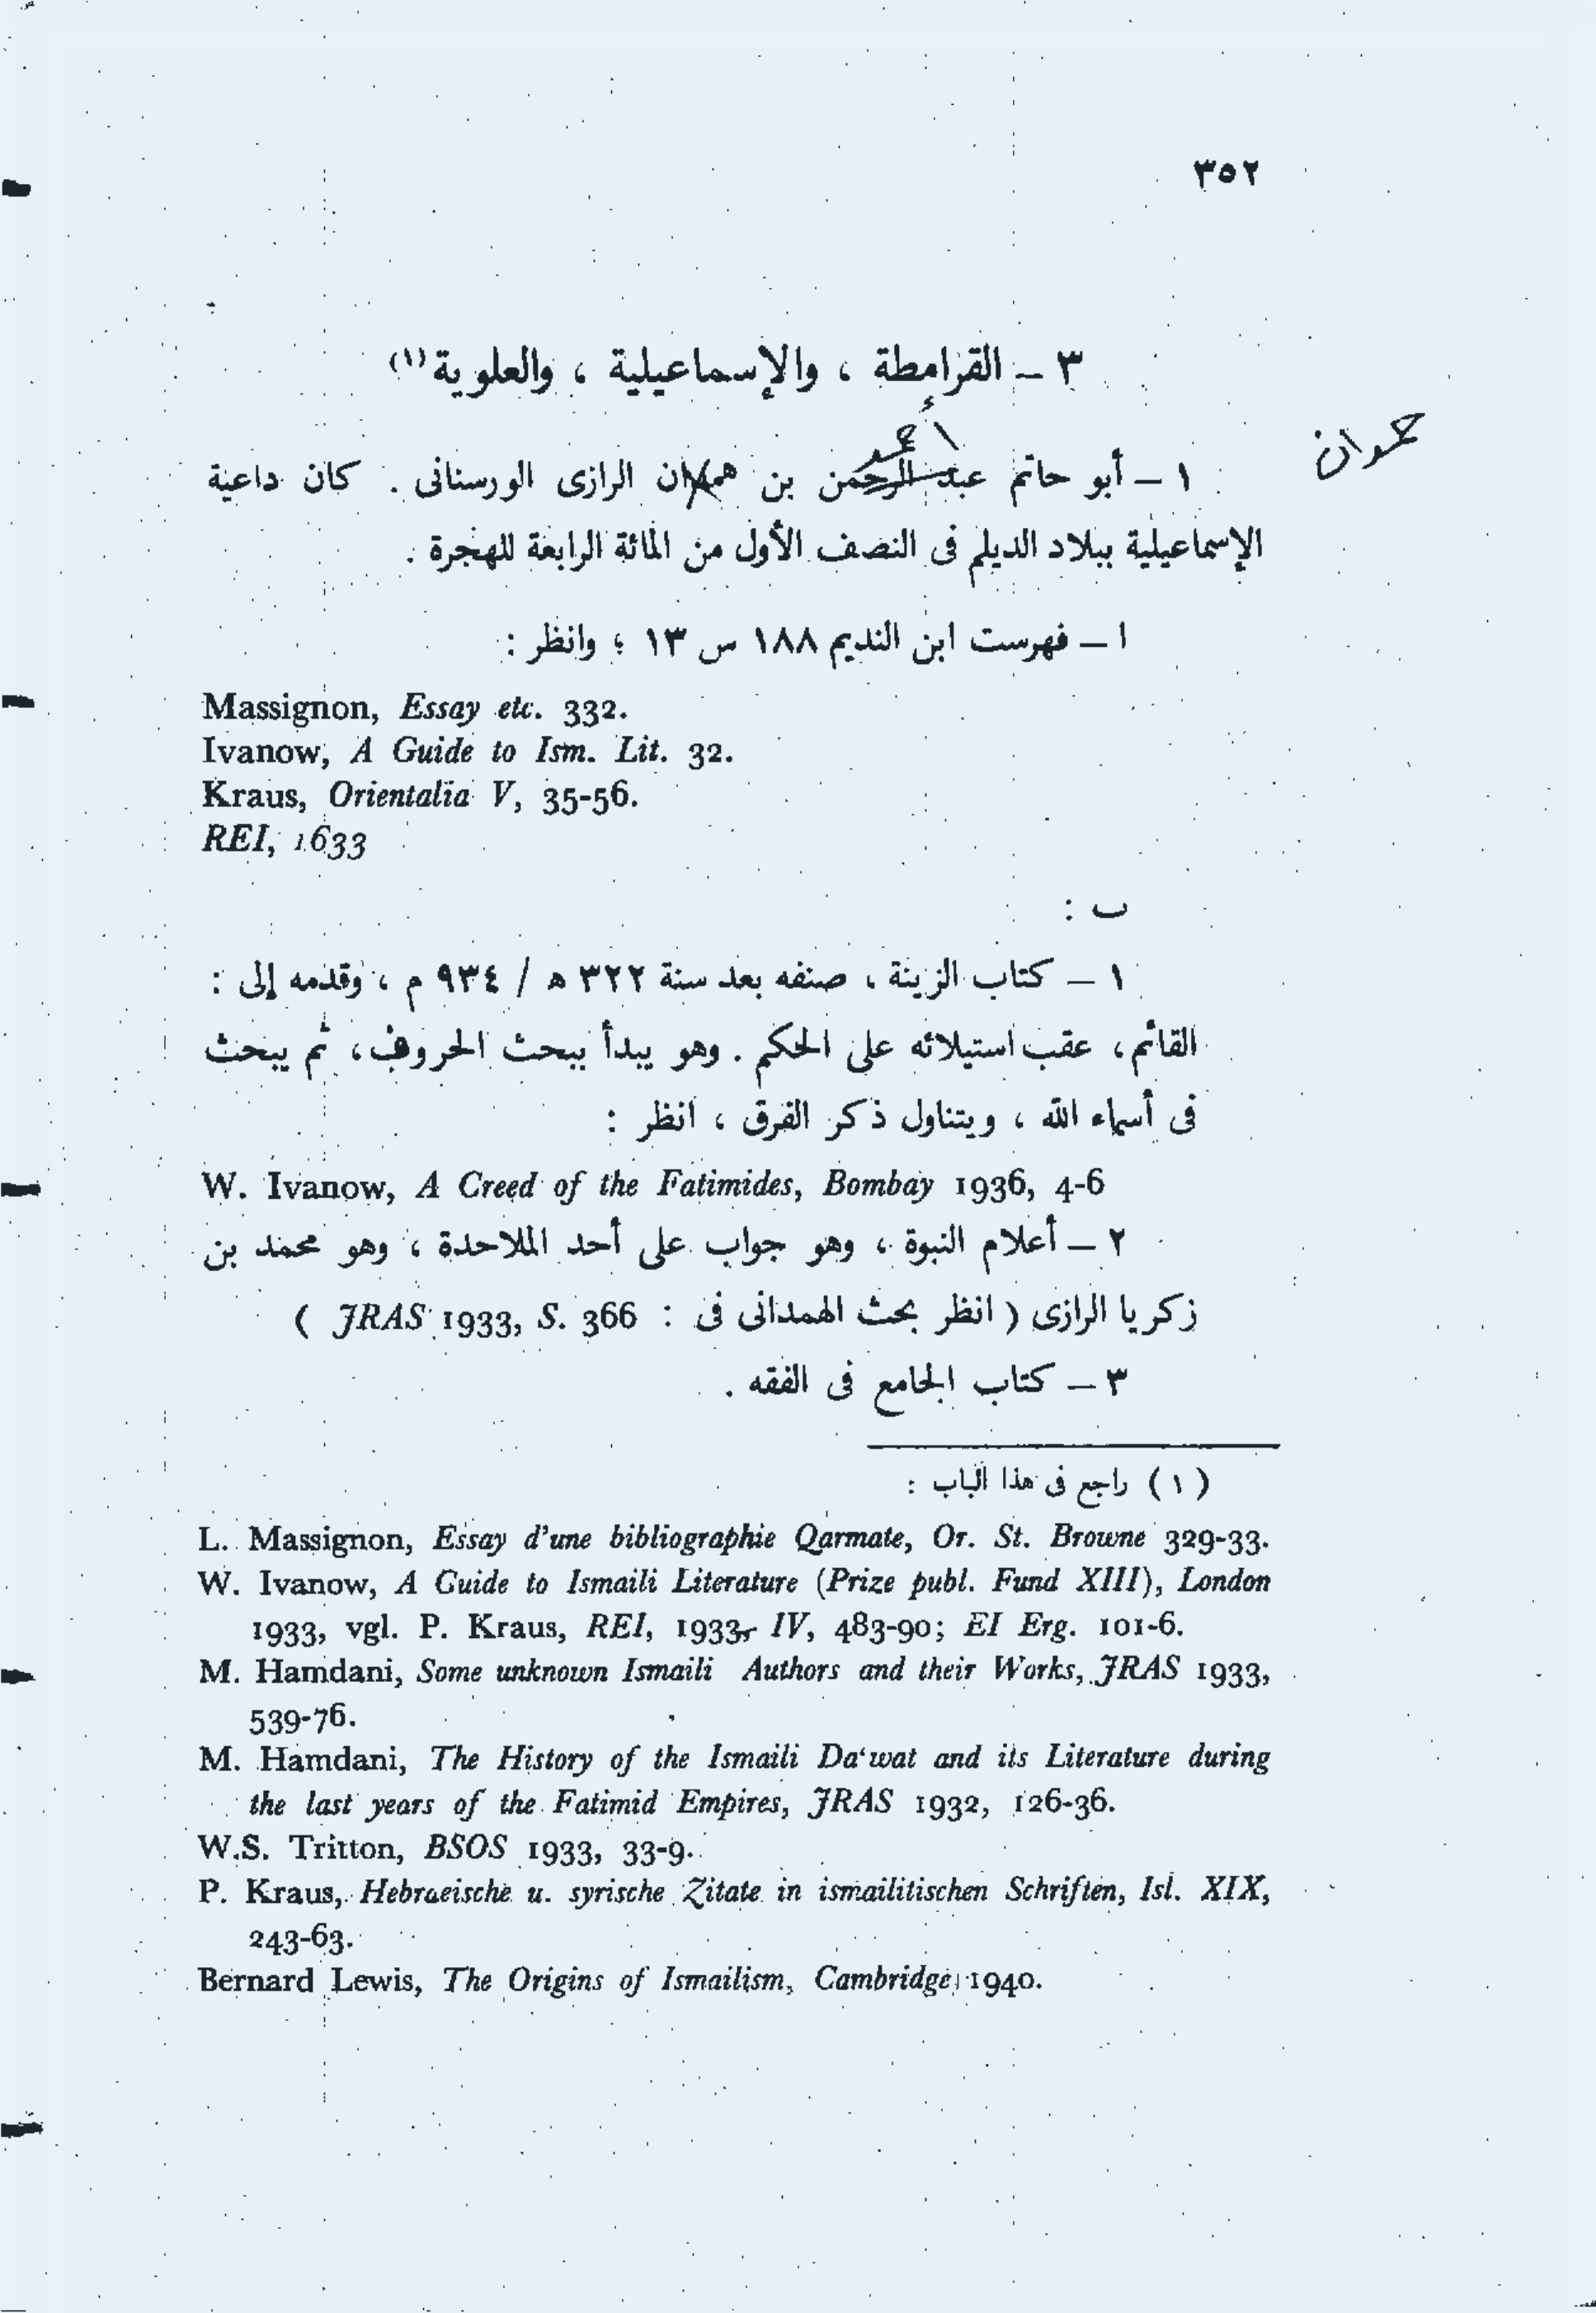 ٣٥٢
٣ – القرامطة ، والإسماعيلية ، والعلوية (١)
أحمد
حمدان
١ – أبو حاتم عبد الرحمن بن همدان الرازى الورسنانى . كان داعية
الإسماعيلية ببلاد الديلم فى النصف الأول من المائة الرابعة للهجرة .
ا – فهرست ابن النديم ١٨٨ س ١٣ ؛ وانظر :
Massignon, Essay etc. 332.
Ivanow, A Guide to Ism. Lit. 32.
Kraus, Orientalia V, 35-56.
REI, 1633
ب :
١ – كتاب الزينة ، صنفه بعد سنة ٣٢٢ ه / ٩٣٤ م ، وقدمه إلى :
القائم ، عقب استيلائه على الحكم . وهو يبدأ ببحث الحروف ، ثم يبحث
فى أسماء الله ، ويتناول ذكر الفرق ، انظر :
W. Ivanow, A Creed of the Fatimides, Bombay 1936, 4-6
٢ – أعلام النبوة ، وهو جواب على أحد الملاحدة ، وهو محمد بن
زكريا الرازى ( انظر بحث الهمدانى فى : JRAS 1933, S. 366 )
٣ – كتاب الجامع فى الفقه .
( ١ ) راجع فى هذا الباب :
L. Massignon, Essay d'une bibliographie Qarmate, Or. St. Browne 329-33.
W. Ivanow, A Guide to Ismaili Literature (Prize publ. Fund XIII), London
1933, vgl. P. Kraus, REI, 1933, IV, 483-90; EI Erg. 101-6.
M. Hamdani, Some unknown Ismaili Authors and their Works, JRAS 1933,
539-76.
M. Hamdani, The History of the Ismaili Da‘wat and its Literature during
the last years of the Fatimid Empires, JRAS 1932, 126-36.
W.S. Tritton, BSOS 1933, 33-9.
P. Kraus, Hebraeische u. syrische Zitate in ismailitischen Schriften, Isl. XIX,
243-63.
Bernard Lewis, The Origins of Ismailism, Cambridge, 1940.